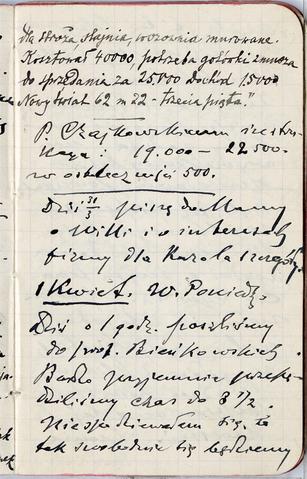 dla stróża, stajnia, wozownia murowane.
Kosztował 40000, potrzeba gotówki zmusza
do sprzedania za 25000 Dochód 15000
Nowy świat 62 m 22 - trzecia piąta."
P. Czajkowskiemu
19.000 — 22500.
w ostateczności 500.
Dziś 31/3 piszę do Mamy
o Willi i o interesach
firmy dla Karola
1 Kwiet. W. Poniedz.
Dziś o 1 godz. poszliśmy
do prof. Bieńkowskich
Bardzo przyjemnie przepę-
dziliśmy czas do 3 1/2.
Niespodziewałem się, że
tak swobodnie się będziemy